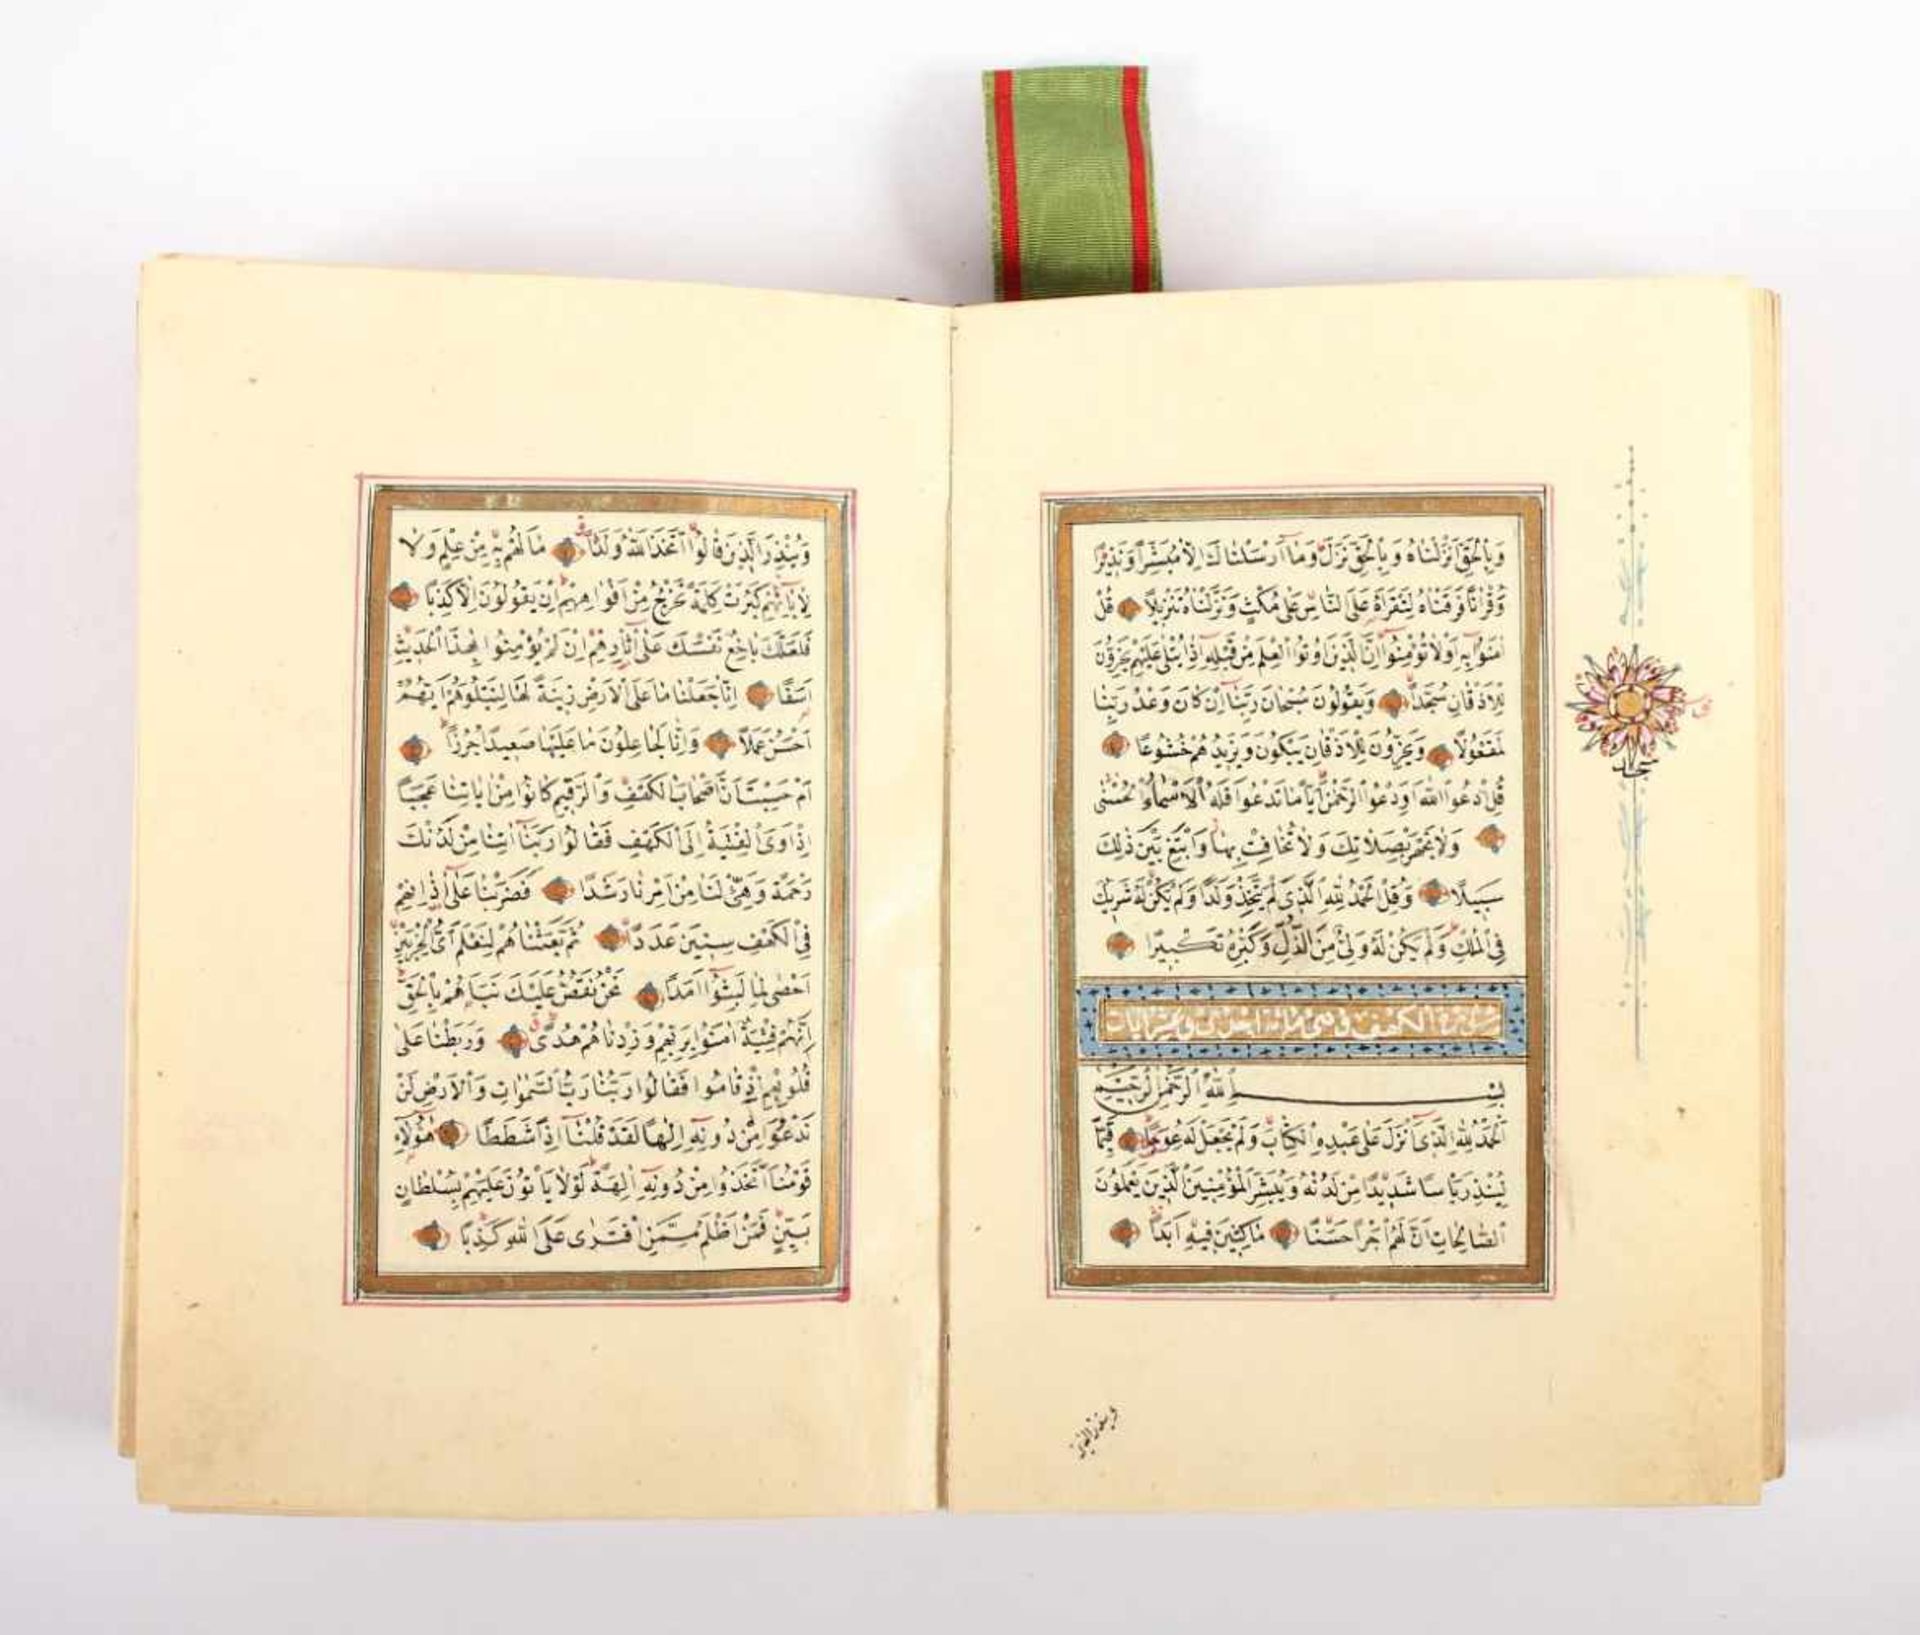 وَبِالْحَقِّ اَنْزَلْنَاهُ وَبِالْحَقِّ نَزَلَ وَمَآ اَرْسَلْنَاكَ اِلَّا مُبَشِّرًا وَنَذِيرًا
وَقُرْاٰنًا فَرَقْنَاهُ لِتَقْرَاَهُ عَلَى النَّاسِ عَلٰى مُكْثٍ وَنَزَّلْنَاهُ تَنْزِيلًا قُلْ
اٰمِنُوا بِهٖٓ اَوْ لَا تُؤْمِنُوا اِنَّ الَّذِينَ اُوتُوا الْعِلْمَ مِنْ قَبْلِهٖٓ اِذَا يُتْلٰى عَلَيْهِمْ يَخِرُّونَ
لِلْاَذْقَانِ سُجَّدًا وَيَقُولُونَ سُبْحَانَ رَبِّنَآ اِنْ كَانَ وَعْدُ رَبِّنَا
لَمَفْعُولًا وَيَخِرُّونَ لِلْاَذْقَانِ يَبْكُونَ وَيَزِيدُهُمْ خُشُوعًا
قُلِ ادْعُوا اللّٰهَ اَوِ دْعُوا الرَّحْمٰنَ اَيًّا مَا تَدْعُوا فَلَهُ الْاَسْمَآءُ الْحُسْنٰى
وَلَا تَجْهَرْ بِصَلَاتِكَ وَلَا تُخَافِتْ بِهَا وَابْتَغِ بَيْنَ ذٰلِكَ
سَبِيلًا وَقُلِ الْحَمْدُ لِلّٰهِ الَّذِى لَمْ يَتَّخِذْ وَلَدًا وَلَمْ يَكُنْ لَهُ شَرِيكٌ
فِى الْمُلْكِ وَلَمْ يَكُنْ لَهُ وَلِىٌّ مِنَ الذُّلِّ وَكَبِّرْهُ تَكْبِيرًا
سورة الكهف وهى مائة وعشر ايات
بِسْمِ اللّٰهِ الرَّحْمٰنِ الرَّحِيمِ
اَلْحَمْدُ لِلّٰهِ الَّذِىٓ اَنْزَلَ عَلٰى عَبْدِهِ الْكِتَابَ وَلَمْ يَجْعَلْ لَهُ عِوَجًا قَيِّمًا
لِيُنْذِرَ بَاْسًا شَدِيدًا مِنْ لَدُنْهُ وَيُبَشِّرَ الْمُؤْمِنِينَ الَّذِينَ يَعْمَلُونَ
الصَّالِحَاتِ اَنَّ لَهُمْ اَجْرًا حَسَنًا مَاكِثِينَ فِيهِ اَبَدًا
سجده
وينذر الذين
وَيُنْذِرَ الَّذِينَ قَالُوا اتَّخَذَ اللّٰهُ وَلَدًا مَا لَهُمْ بِهٖ مِنْ عِلْمٍ وَلَا
لِاٰبَآئِهِمْ كَبُرَتْ كَلِمَةً تَخْرُجُ مِنْ اَفْوَاهِهِمْ اِنْ يَقُولُونَ اِلَّا كَذِبًا
فَلَعَلَّكَ بَاخِعٌ نَفْسَكَ عَلٰٓى اٰثَارِهِمْ اِنْ لَمْ يُؤْمِنُوا بِهٰذَا الْحَدِيثِ
اَسَفًا اِنَّا جَعَلْنَا مَا عَلَى الْاَرْضِ زِينَةً لَهَا لِنَبْلُوَهُمْ اَيُّهُمْ
اَحْسَنُ عَمَلًا وَاِنَّا لَجَاعِلُونَ مَا عَلَيْهَا صَعِيدًا جُرُزًا
اَمْ حَسِبْتَ اَنَّ اَصْحَابَ الْكَهْفِ وَالرَّقِيمِ كَانُوا مِنْ اٰيَاتِنَا عَجَبًا
اِذْ اَوَى الْفِتْيَةُ اِلَى الْكَهْفِ فَقَالُوا رَبَّنَآ اٰتِنَا مِنْ لَدُنْكَ
رَحْمَةً وَهَيِّئْ لَنَا مِنْ اَمْرِنَا رَشَدًا فَضَرَبْنَا عَلٰٓى اٰذَانِهِمْ
فِى الْكَهْفِ سِنِينَ عَدَدًا ثُمَّ بَعَثْنَاهُمْ لِنَعْلَمَ اَىُّ الْحِزْبَيْنِ
اَحْصٰى لِمَا لَبِثُوٓا اَمَدًا نَحْنُ نَقُصُّ عَلَيْكَ نَبَاَهُمْ بِالْحَقِّ
اِنَّهُمْ فِتْيَةٌ اٰمَنُوا بِرَبِّهِمْ وَزِدْنَاهُمْ هُدًى وَرَبَطْنَا عَلٰى
قُلُوبِهِمْ اِذْ قَامُوا فَقَالُوا رَبُّنَا رَبُّ السَّمٰوَاتِ وَالْاَرْضِ لَنْ
نَدْعُوَا مِنْ دُونِهٖٓ اِلٰهًا لَقَدْ قُلْنَآ اِذًا شَطَطًا هٰٓؤُلَآءِ
قَوْمُنَا اتَّخَذُوا مِنْ دُونِهٖٓ اٰلِهَةً لَوْلَا يَاْتُونَ عَلَيْهِمْ بِسُلْطَانٍ
بَيِّنٍ فَمَنْ اَظْلَمُ مِمَّنِ افْتَرٰى عَلَى اللّٰهِ كَذِبًا